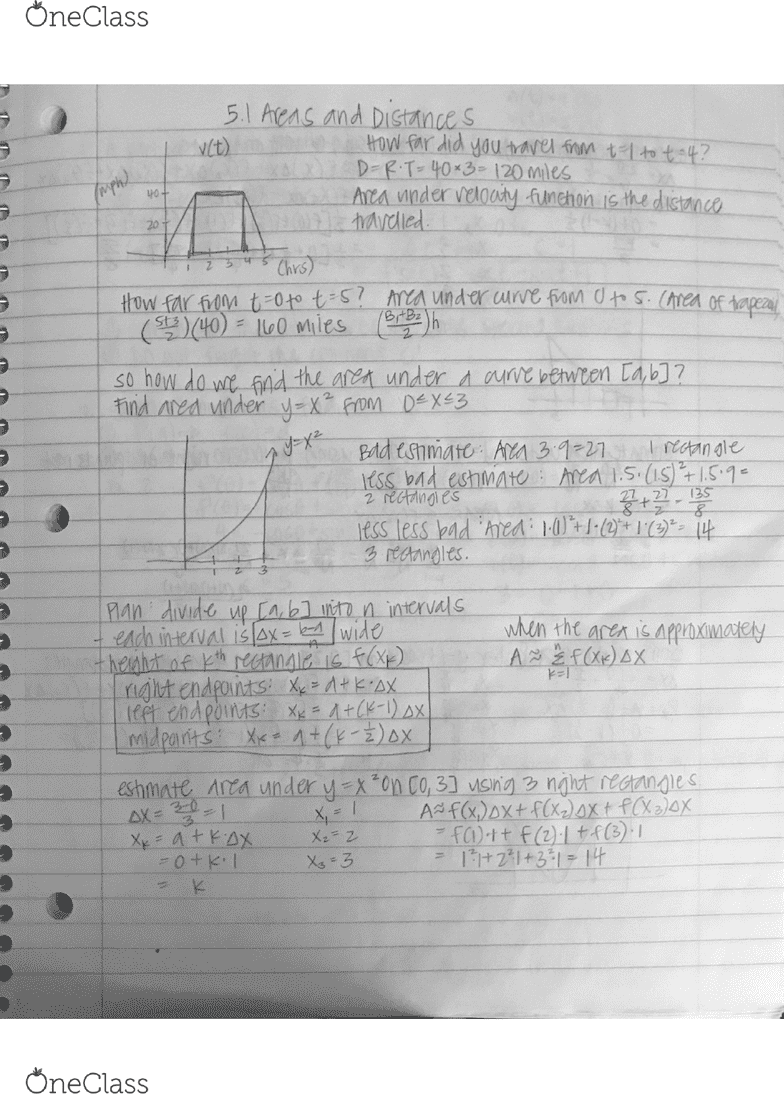 OneClass
5.1 Areas and Distances
v(t)
(mph)
40
20
1 2 3 4 5 (hrs)
How far did you travel from t=1 to t=4?
D=R·T=40×3=120 miles
Area under velocity function is the distance
travelled.
How far from t=0 to t=5? Area under curve from 0 to 5. (Area of
(5+3/2)(40) = 160 miles (B₁+B₂/2)h
so how do we find the area under a curve between [a,b]?
Find area under y=x² from 0≤x≤3
y=x²
1 2 3
Bad estimate: Area 3·9=27 1 rectangle
less bad estimate: Area 1.5·(1.5)²+1.5·9=
2 rectangles 27/8+27/2=135/8
less less bad: Area: 1·(1)²+1·(2)²+1·(3)²=14
3 rectangles.
Plan: divide up [a,b] into n intervals
- each interval is Δx = b-a/n wide
- height of kth rectangle is f(xₖ)
right endpoints: xₖ = a+k·Δx
left endpoints: xₖ = a+(k-1)Δx
midpoints: xₖ = a+(k-½)Δx
when the area is approximately
A≈ Σ f(xₖ)Δx
n
k=1
estimate area under y=x² on [0,3] using 3 right rectangles
Δx = 3-0/3 = 1 x₁ = 1 A≈f(x₁)Δx+f(x₂)Δx+f(x₃)Δx
xₖ = a+k·Δx x₂=2 = f(1)·1+f(2)·1+f(3)·1
=0+k·1 x₃=3 = 1²·1+2²·1+3²·1=14
= k
OneClass